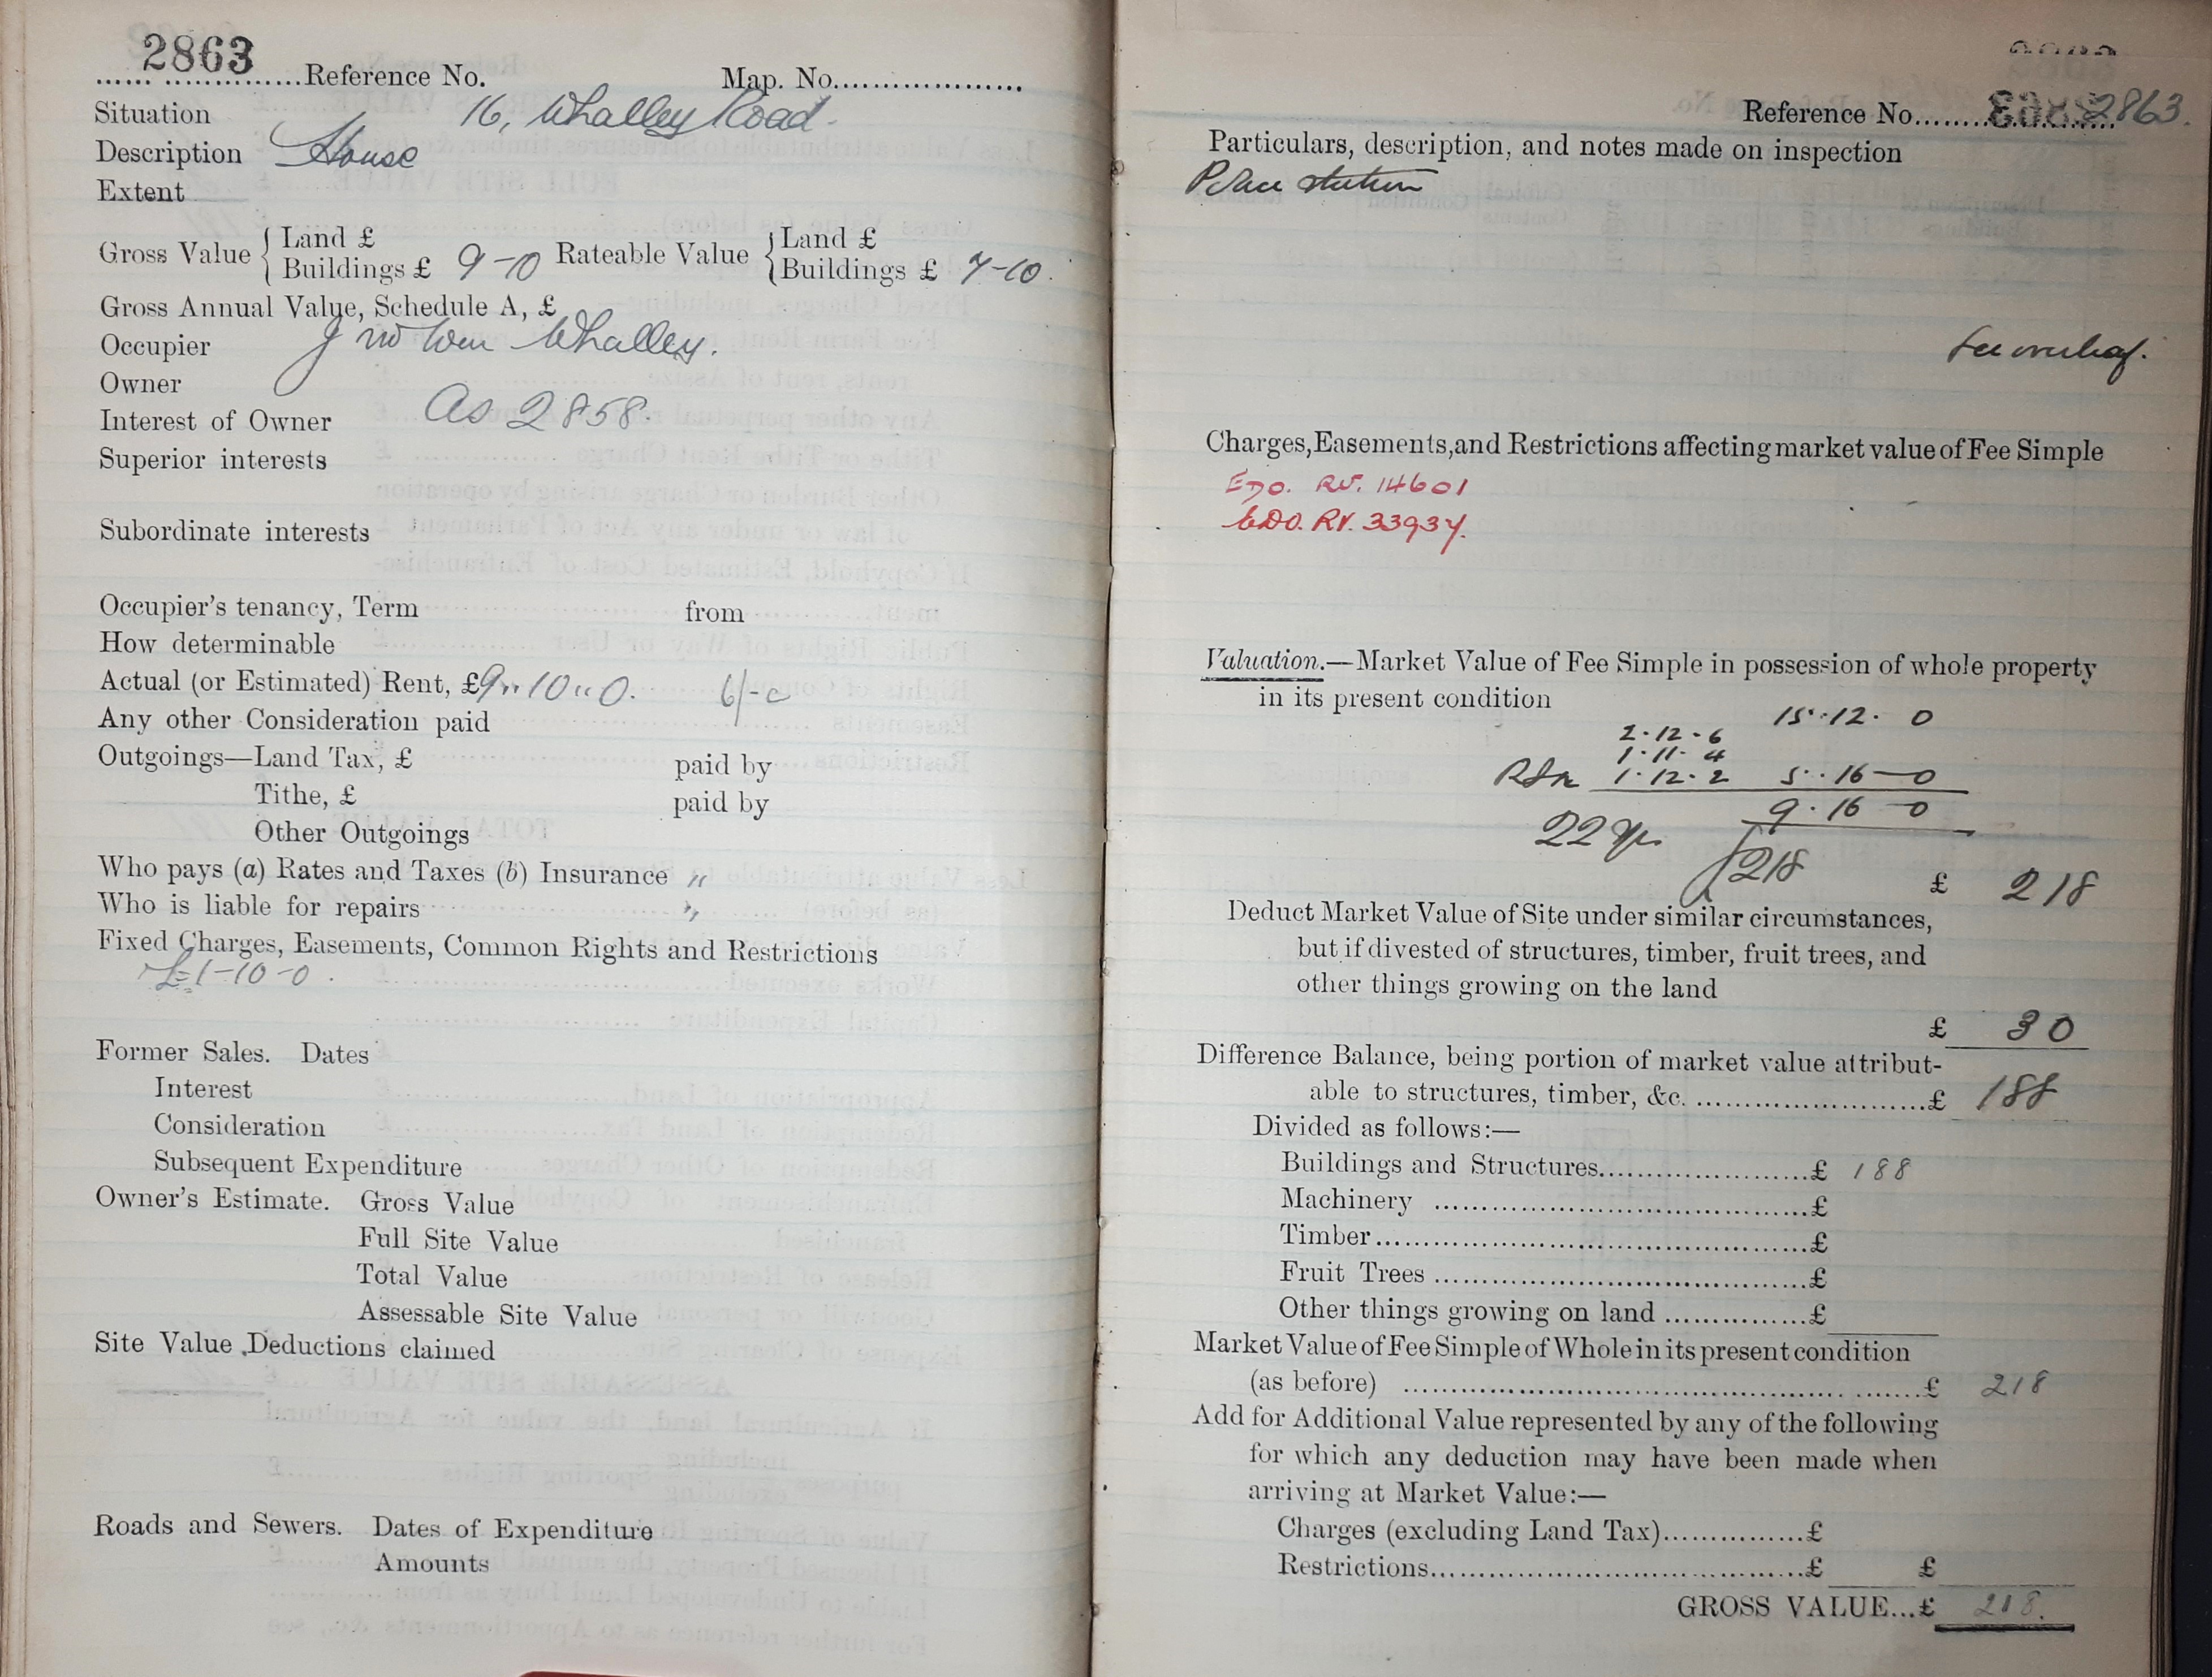 2863
Reference No. Map. No.
Situation 16, Whalley Road.
Description House
Extent
Gross Value { Land £
Buildings £ 9-10 Rateable Value { Land £
Buildings £ 7-10.
Gross Annual Value, Schedule A, £
Occupier Jno Wm Whalley.
Owner
Interest of Owner As 2858.
Superior interests
Subordinate interests
Occupier's tenancy, Term from
How determinable
Actual (or Estimated) Rent, £9 " 10 " 0. 6/-
Any other Consideration paid
Outgoings—Land Tax, £ paid by
Tithe, £ paid by
Other Outgoings
Who pays (a) Rates and Taxes (b) Insurance "
Who is liable for repairs "
Fixed Charges, Easements, Common Rights and Restrictions
£1-10-0.
Former Sales. Dates
Interest
Consideration
Subsequent Expenditure
Owner's Estimate. Gross Value
Full Site Value
Total Value
Assessable Site Value
Site Value Deductions claimed
Roads and Sewers. Dates of Expenditure
Amounts
Reference No. 2863.
Particulars, description, and notes made on inspection
Police station
See overleaf.
Charges, Easements, and Restrictions affecting market value of Fee Simple
RV. 14601
RV. 33934.
Valuation.—Market Value of Fee Simple in possession of whole property
in its present condition
15 . 12 . 0
2 . 12 . 6
1 . 11 . 4
1 . 12 . 2 5 . 16 — 0
9 . 16 0
22 yp £218
£ 218
Deduct Market Value of Site under similar circumstances,
but if divested of structures, timber, fruit trees, and
other things growing on the land
£ 30
Difference Balance, being portion of market value attribut-
able to structures, timber, &c. £ 188
Divided as follows:—
Buildings and Structures £ 188
Machinery £
Timber £
Fruit Trees £
Other things growing on land £
Market Value of Fee Simple of Whole in its present condition
(as before) £ 218
Add for Additional Value represented by any of the following
for which any deduction may have been made when
arriving at Market Value:—
Charges (excluding Land Tax) £
Restrictions £ £
GROSS VALUE...£ 218.